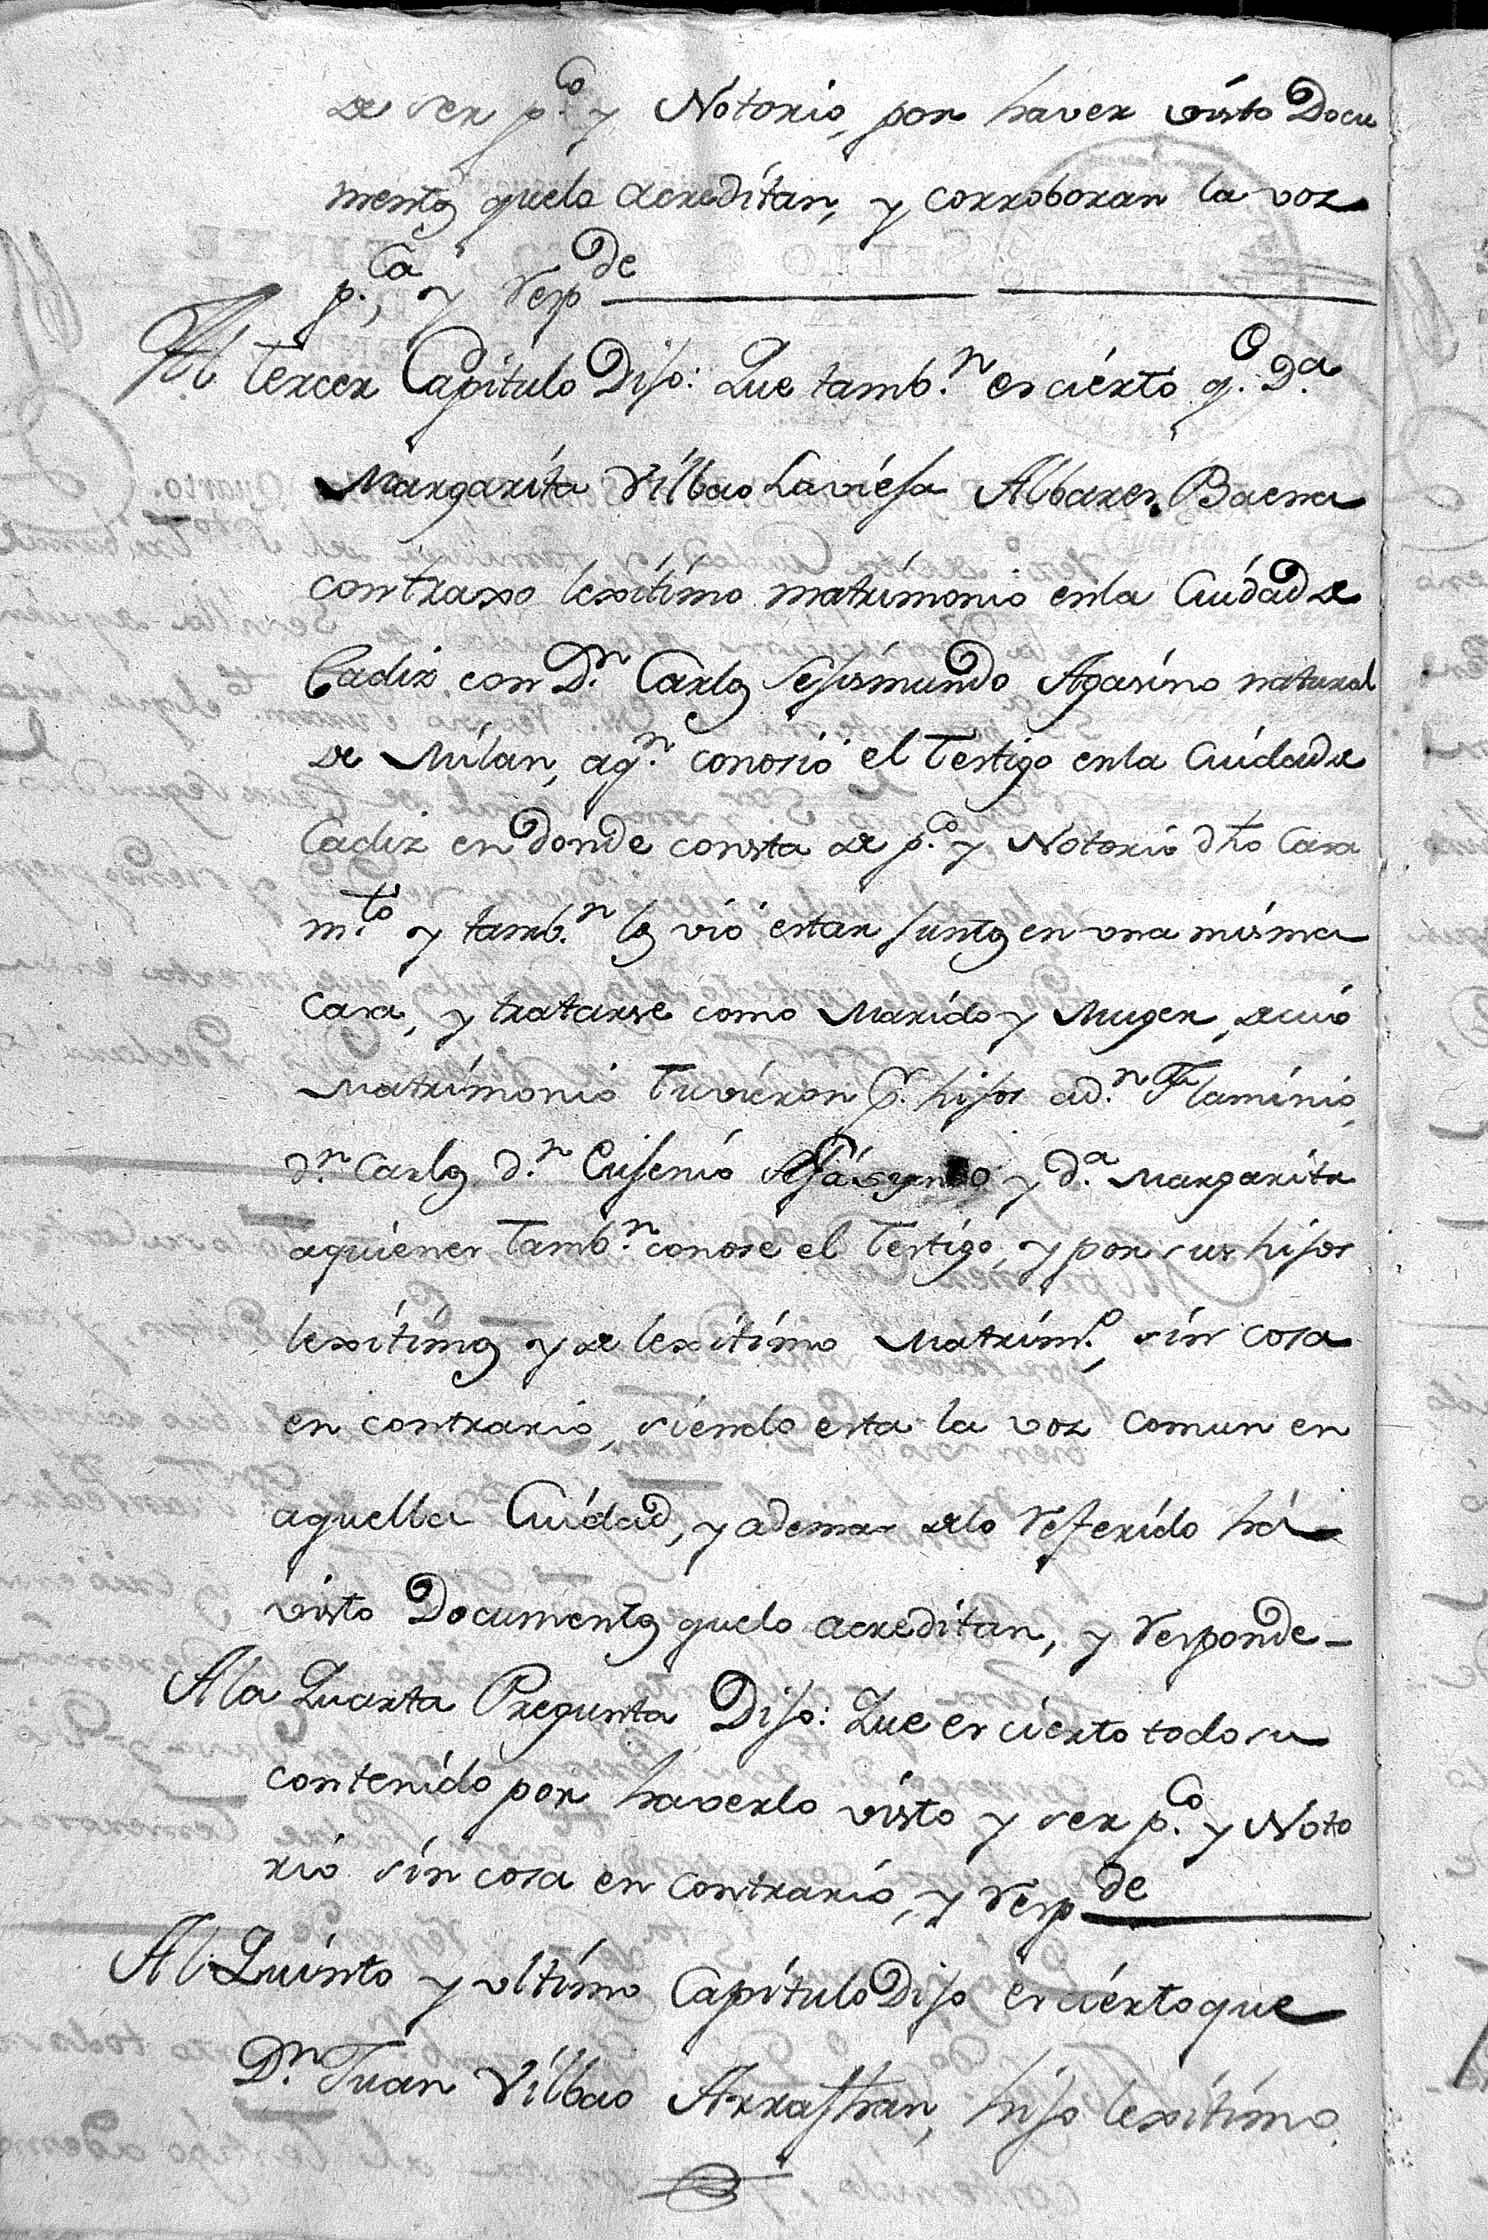 de ser p.co y Notorio, por haver visto Docu
mentos quelo acreditan, y corroboran la voz
p.ca, y resp de
Al tercer Capitulo Dijo: Que tamb.n es cierto q.e D.a
Margarita Vilbao Laviesa Albares Baena
contraxo lexitimo matrimonio enla Ciudad de
Cadiz con D.n Carlos Sesismundo Agasino natural
de Milan, aq.n conosio el Testigo enla Ciudad de
Cadiz en donde consta de p.co y Notorio dho Casa
m.to y tamb.n los vio estar juntos en una misma
casa, y tratarse como Marido y Muger, de cuio
Matrimonio Tuvieron p.r hijos ad.n Flaminio,
d.n Carlos d.n Eusenio y d.a Margarita
aquienes Tamb.n conose el Testigo, y por sus hijos
lexitimos y de lexitimo Matrim.o, sin cosa
en contrario, siendo esta la voz comun en
aquella Ciudad, y ademas delo referido há
visto Documentos quelo acreditan, y responde-
Ala Quarta Pregunta Dijo: Que es cierto todo su
contenido por haverlo visto y ser p.co y Noto
rio sin cosa en contrario, y resp de
Al Quinto y ultimo Capitulo Dijo es cierto que
D.n Juan Vilbao hijo lexitimo